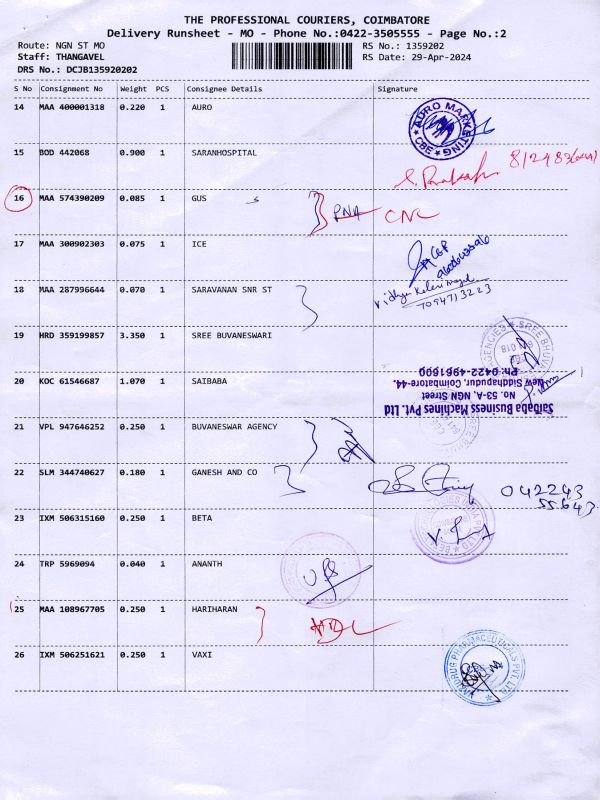 THE PROFESSIONAL COURIERS, COIMBATORE
Delivery Runsheet - MO - Phone No.:0422-3505555 - Page No.:2
Route: NGN ST MO RS No.: 1359202
Staff: THANGAVEL RS Date: 29-Apr-2024
DRS No.: DCJB135920202
S No Consignment No Weight PCS Consignee Details Signature
14 MAA 400001318 0.220 1 AURO
AURO MARKETING CBE
15 BOD 442068 0.900 1 SARANHOSPITAL
16 MAA 574390209 0.085 1 GUS PNA CNC
17 MAA 300902303 0.075 1 ICE
18 MAA 287996644 0.070 1 SARAVANAN SNR ST
7094713223
19 HRD 359199857 3.350 1 SREE BUVANESWARI
20 KOC 61546687 1.070 1 SAIBABA
Saibaba Business Machines Pvt. Ltd
No. 53-A, NGN Street
New Siddhapudur, Coimbatore-44.
Ph: 0422-4961600
21 VPL 947646252 0.250 1 BUVANESWAR AGENCY
22 SLM 344740627 0.180 1 GANESH AND CO
042243
55643
23 IXM 506315160 0.250 1 BETA
24 TRP 5969094 0.040 1 ANANTH
25 MAA 108967705 0.250 1 HARIHARAN
26 IXM 506251621 0.250 1 VAXI